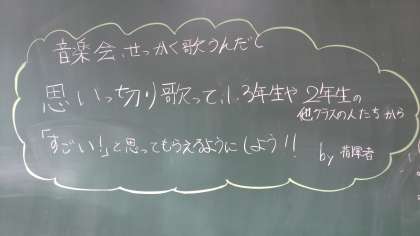 音楽会、せっかく歌うんだし
思いっ切り歌って、1、3年生や2年生の
他クラスの人たちから
「すごい!」と思ってもらえるようにしよう!!
by 指揮者